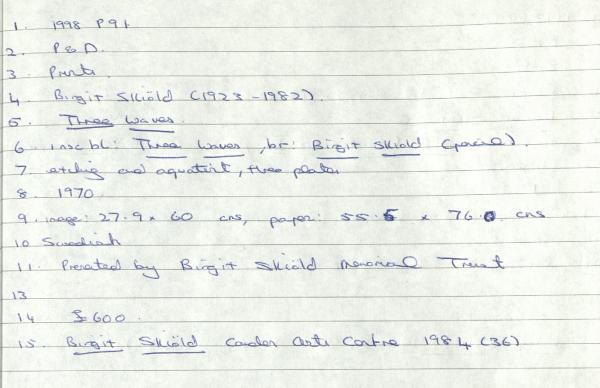 1. 1998 P 91
2. P & D.
3. Prints
4 Birgit Skiöld (1923-1982).
5. Three Waves.
6 insc bl: Three Waves, br: Birgit Skiold (pencil).
7 etching and aquatint, three plates
8. 1970
9. image: 27.9 x 60 cms, paper: 55.5 x 76.0 cms
10 Swedish
11. Presented by Birgit Skiöld Memorial Trust
13
14 £600.
15. Birgit Skiöld Camden Arts Centre 1984 (36)